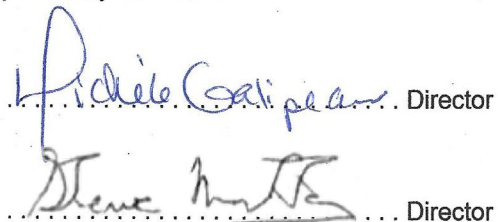 Michèle Galipeau Director
Steve Director